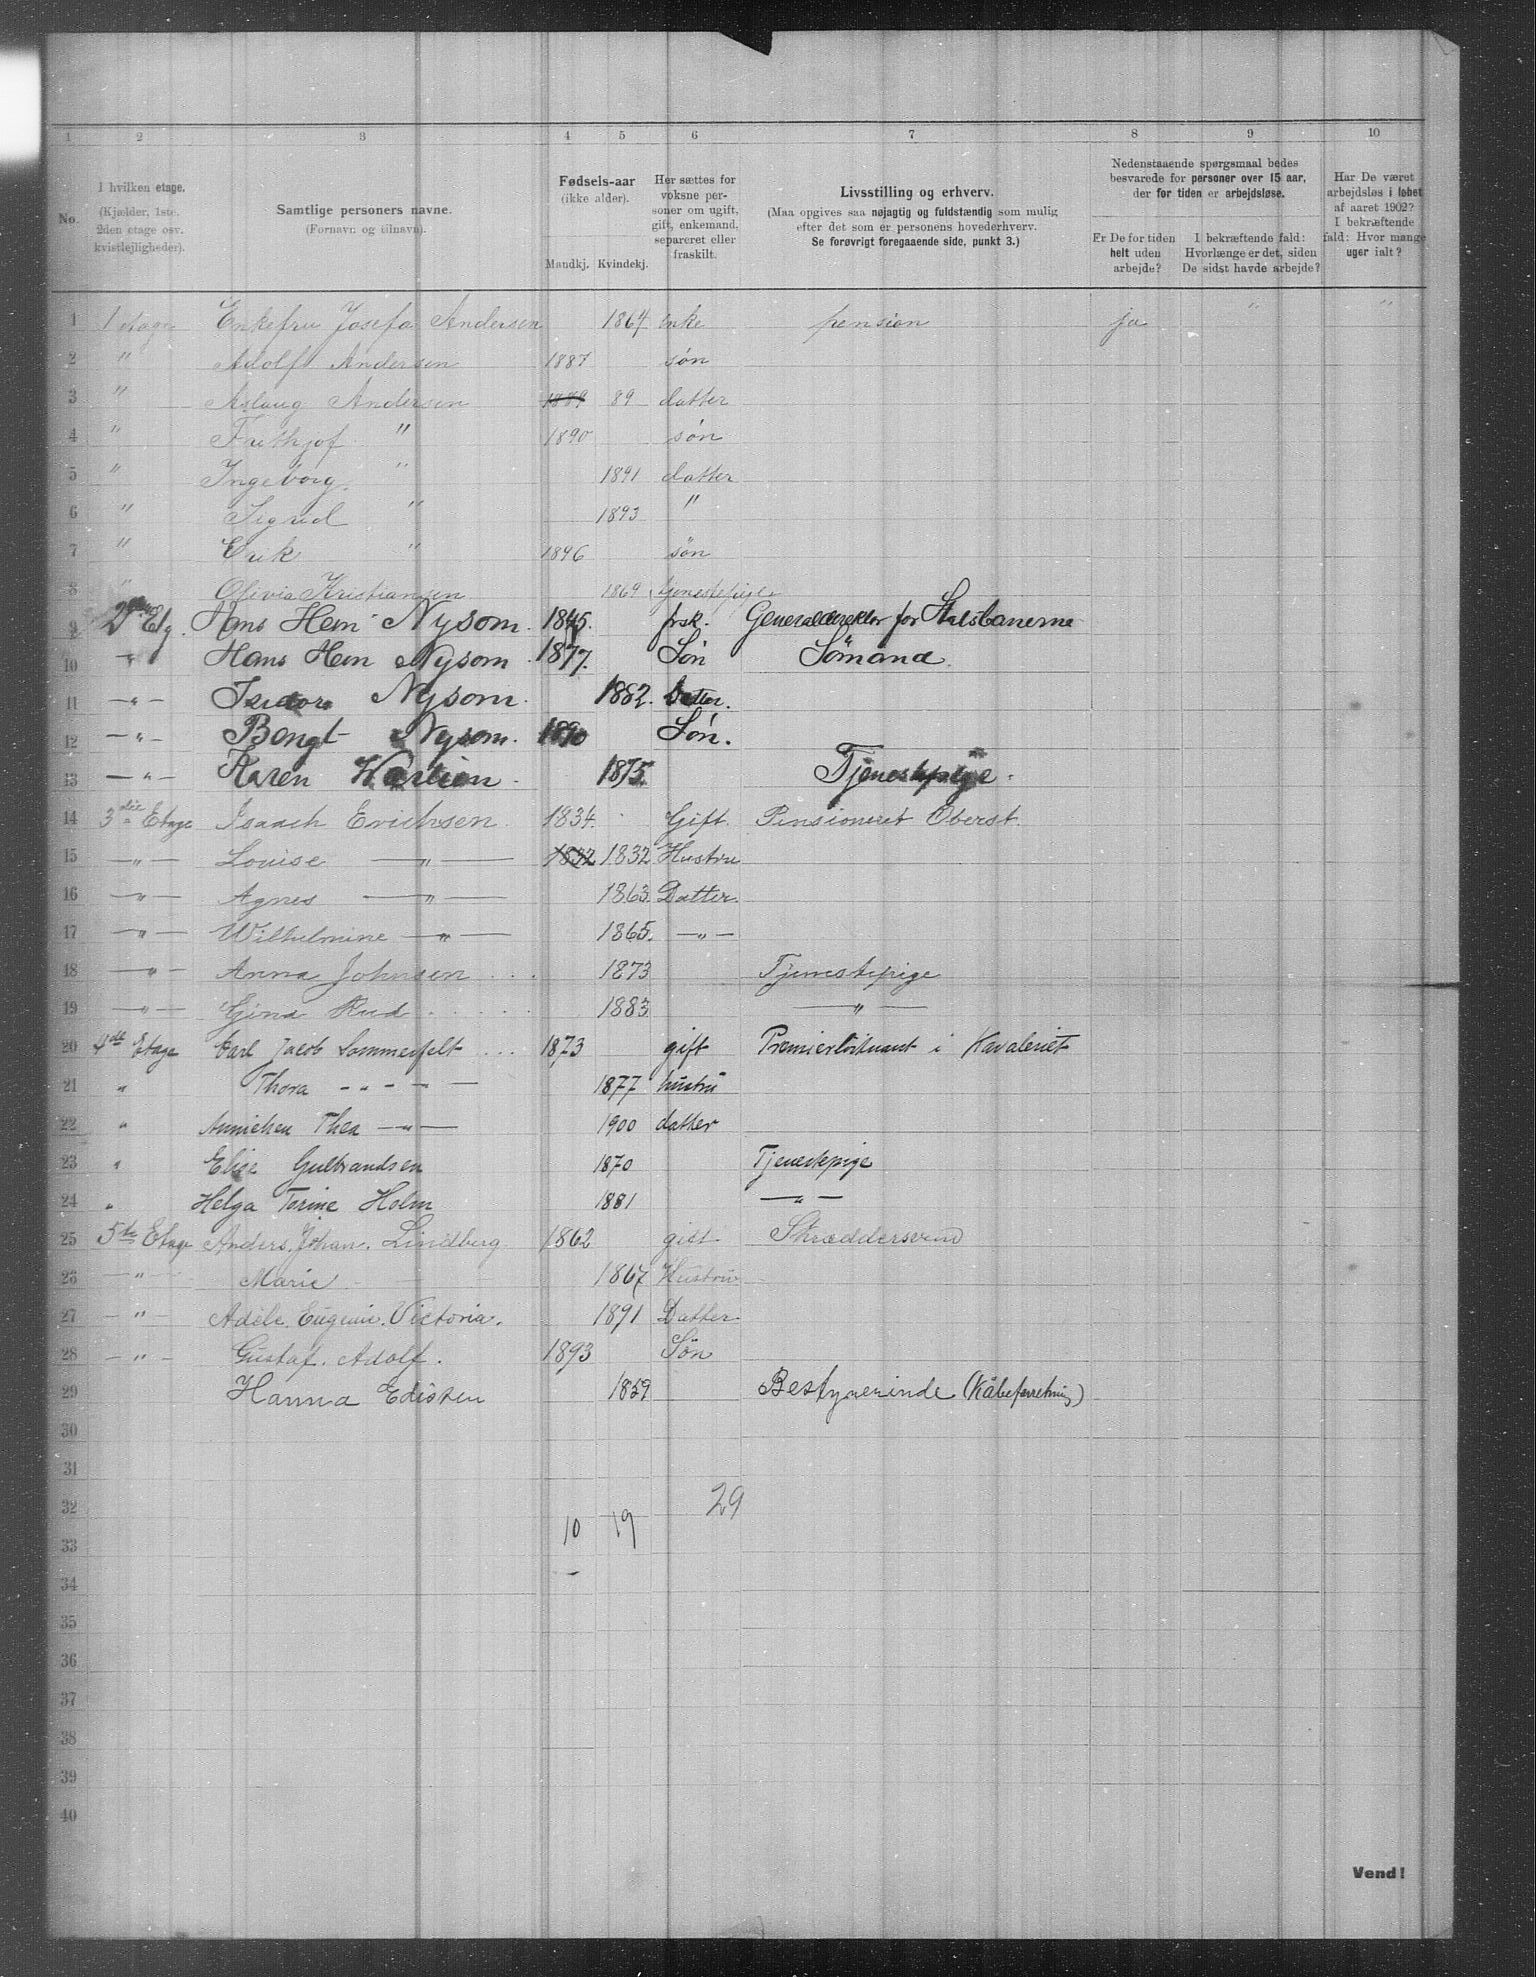 1 2 3 4 5 6 7 8 9 10
No.
I hvilken etage.
(Kjælder, 1ste.
2den etage osv.
kvistlejligheder).
Samtlige personers navne.
(Fornavn og tilnavn).
Fødsels-aar
(ikke alder).
Mandkj. Kvindekj.
Her sættes for
voksne per-
soner om ugift,
gift, enkemand,
separeret eller
fraskilt.
Livsstilling og erhverv.
(Maa opgives saa nøjagtig og fuldstændig som mulig
efter det som er personens hovederhverv.
Se forøvrigt foregaaende side, punkt 3.)
Nedenstaaende spørgsmaal bedes
besvarede for personer over 15 aar,
der for tiden er arbejdsløse.
Er De for tiden
helt uden
arbejde?
I bekræftende fald:
Hvorlænge er det, siden
De sidst havde arbejde?
Har De været
arbejdsløs i løbet
af aaret 1902?
I bekræftende
fald: Hvor mange
uger ialt?
1 1 etage Enkefru Josefa Andersen 1864 enke pension ja " "
2 " Adolf Andersen 1887 søn
3 " Aslaug Andersen 1889 89 datter
4 " Frithjof " 1890 søn
5 " Ingeborg. " 1891 datter
6 " Sigrid " 1893 "
7 " Erik " 1896 søn
8 " Olivia Kristiansen 1869 tjenestepige
9 2 Etg. Hans Hein Nysom. 1845. frsk. Generaldirektør for Statsbanerne
10 " Hans Hein Nysom 1877. Søn Sømand.
11 — " — Isidora Nysom. 1882. Datter.
12 — " — Bengt Nysom. 1890 Søn.
13 — " — Karen 1875. Tjenestepige.
14 3die Etage Isaach Erichsen 1834. Gift. Pensioneret Oberst.
15 — " — Louise — " — 1832 1832 Hustru
16 — " — Agnes — " — 1863. Datter.
17 — " — Wilhelmine — " — 1865. — " —
18 — " — Anna Johnsen . . . 1873 Tjenestepige
19 — " — Gina Rud . . . . . 1883 — " —
20 4de Etage Carl Jacob Sommerfelt . . . 1873 gift Premierløitnant i Kavaleriet
21 " Thora — " — — — 1877 hustru
22 " Annichen Thea — " — 1900 datter
23 " Elise Gulbrandsen 1870 Tjenestepige
24 " Helga Torine Holm 1881 — " —
25 5te Etage Anders. Johan. Lindberg 1862 gift Skræddersvend
26 — " — Marie — — 1867 Hustru
27 — " — Adèle. Eugenie. Victoria. 1891 Datter
28 — " — Gustaf. Adolf. 1893 Søn
29 Hanna Edisen 1859 Bestyrerinde (Kåbeforretning)
30
31
32 29
10 19
33
34
35
36
37
38
39
40
Vend!